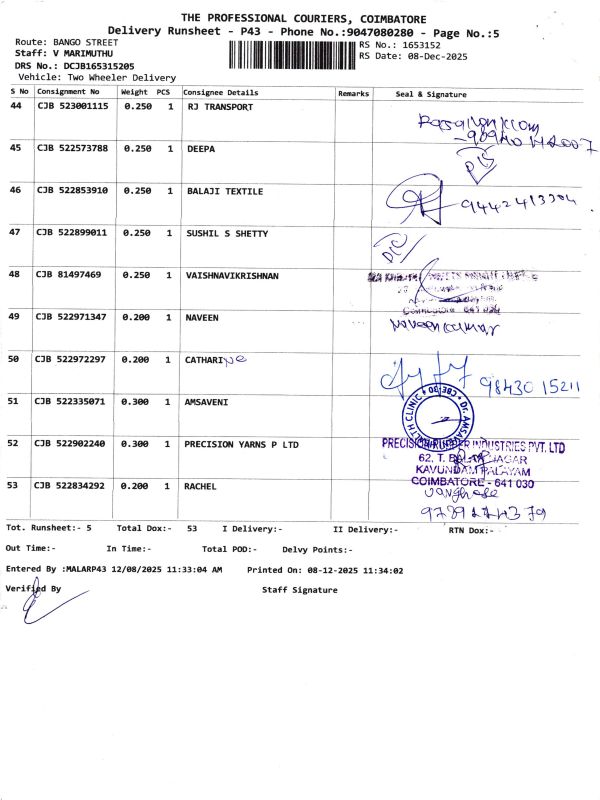 THE PROFESSIONAL COURIERS, COIMBATORE
Delivery Runsheet - P43 - Phone No.:9047080280 - Page No.:5
Route: BANGO STREET
RS No.: 1653152
Staff: V MARIMUTHU
RS Date: 08-Dec-2025
DRS No.: DCJB165315205
Vehicle: Two Wheeler Delivery
S No Consignment No Weight PCS Consignee Details Remarks Seal & Signature
44 CJB 523001115 0.250 1 RJ TRANSPORT
45 CJB 522573788 0.250 1 DEEPA
46 CJB 522853910 0.250 1 BALAJI TEXTILE
9442413304
47 CJB 522899011 0.250 1 SUSHIL S SHETTY
48 CJB 81497469 0.250 1 VAISHNAVIKRISHNAN
49 CJB 522971347 0.200 1 NAVEEN
Naveenkumar
50 CJB 522972297 0.200 1 CATHARINe
98430 15211
51 CJB 522335071 0.300 1 AMSAVENI
52 CJB 522902240 0.300 1 PRECISION YARNS P LTD
PRECISION RUBBER INDUSTRIES PVT. LTD
62, T. NAGAR
KAVUNDAM PALAYAM
COIMBATORE - 641 030
53 CJB 522834292 0.200 1 RACHEL
Tot. Runsheet:- 5 Total Dox:- 53 I Delivery:- II Delivery:- RTN Dox:-
Out Time:- In Time:- Total POD:- Delvy Points:-
Entered By :MALARP43 12/08/2025 11:33:04 AM Printed On: 08-12-2025 11:34:02
Verified By Staff Signature